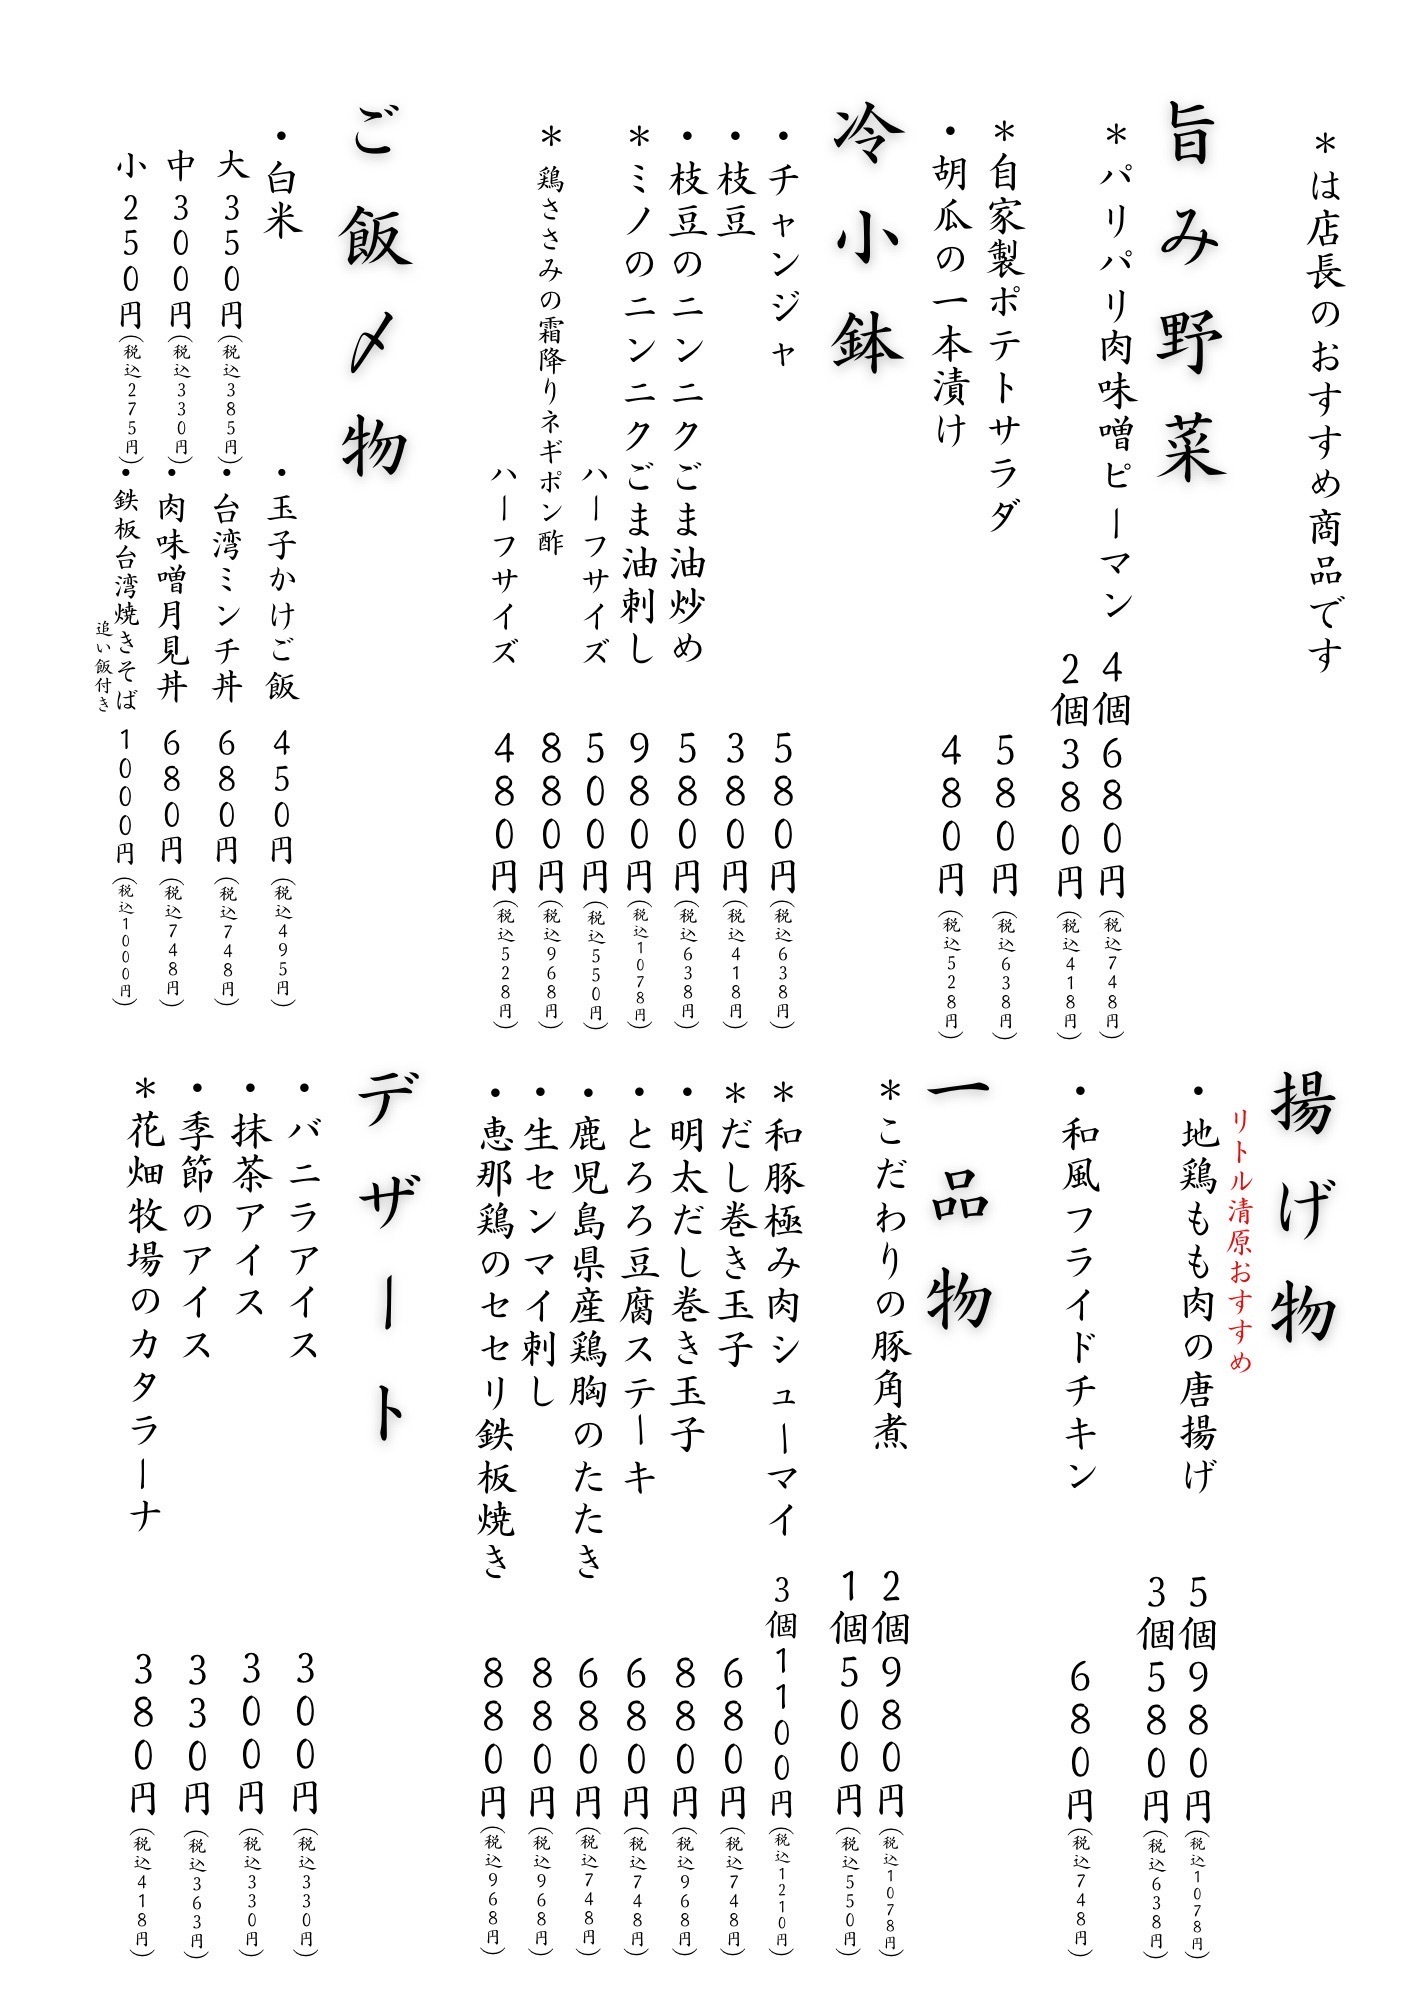 ＊は店長のおすすめ商品です
旨み野菜
＊パリパリ肉味噌ピーマン 4個680円(税込748円)
2個380円(税込418円)
＊自家製ポテトサラダ 580円(税込638円)
・胡瓜の一本漬け 480円(税込528円)
冷小鉢
・チャンジャ 580円(税込638円)
・枝豆 380円(税込418円)
・枝豆のニンニクごま油炒め 580円(税込638円)
＊ミノのニンニクごま油刺し 980円(税込1078円)
ハーフサイズ 500円(税込550円)
＊鶏ささみの霜降りネギポン酢 880円(税込968円)
ハーフサイズ 480円(税込528円)
ご飯〆物
・白米
大 350円(税込385円)
中 300円(税込330円)
小 250円(税込275円)
・玉子かけご飯 450円(税込495円)
・台湾ミンチ丼 680円(税込748円)
・肉味噌月見丼 680円(税込748円)
・鉄板台湾焼きそば 1000円(税込1000円)
追い飯付き
揚げ物
リトル清原おすすめ
・地鶏もも肉の唐揚げ 5個980円(税込1078円)
3個580円(税込638円)
・和風フライドチキン 680円(税込748円)
一品物
＊こだわりの豚角煮 2個980円(税込1078円)
1個500円(税込550円)
＊和豚極み肉シューマイ 3個1100円(税込1210円)
＊だし巻き玉子 680円(税込748円)
・明太だし巻き玉子 880円(税込968円)
・とろろ豆腐ステーキ 680円(税込748円)
・鹿児島県産鶏胸のたたき 680円(税込748円)
・生センマイ刺し 880円(税込968円)
・恵那鶏のセセリ鉄板焼き 880円(税込968円)
デザート
・バニラアイス 300円(税込330円)
・抹茶アイス 300円(税込330円)
・季節のアイス 330円(税込363円)
＊花畑牧場のカタラーナ 380円(税込418円)